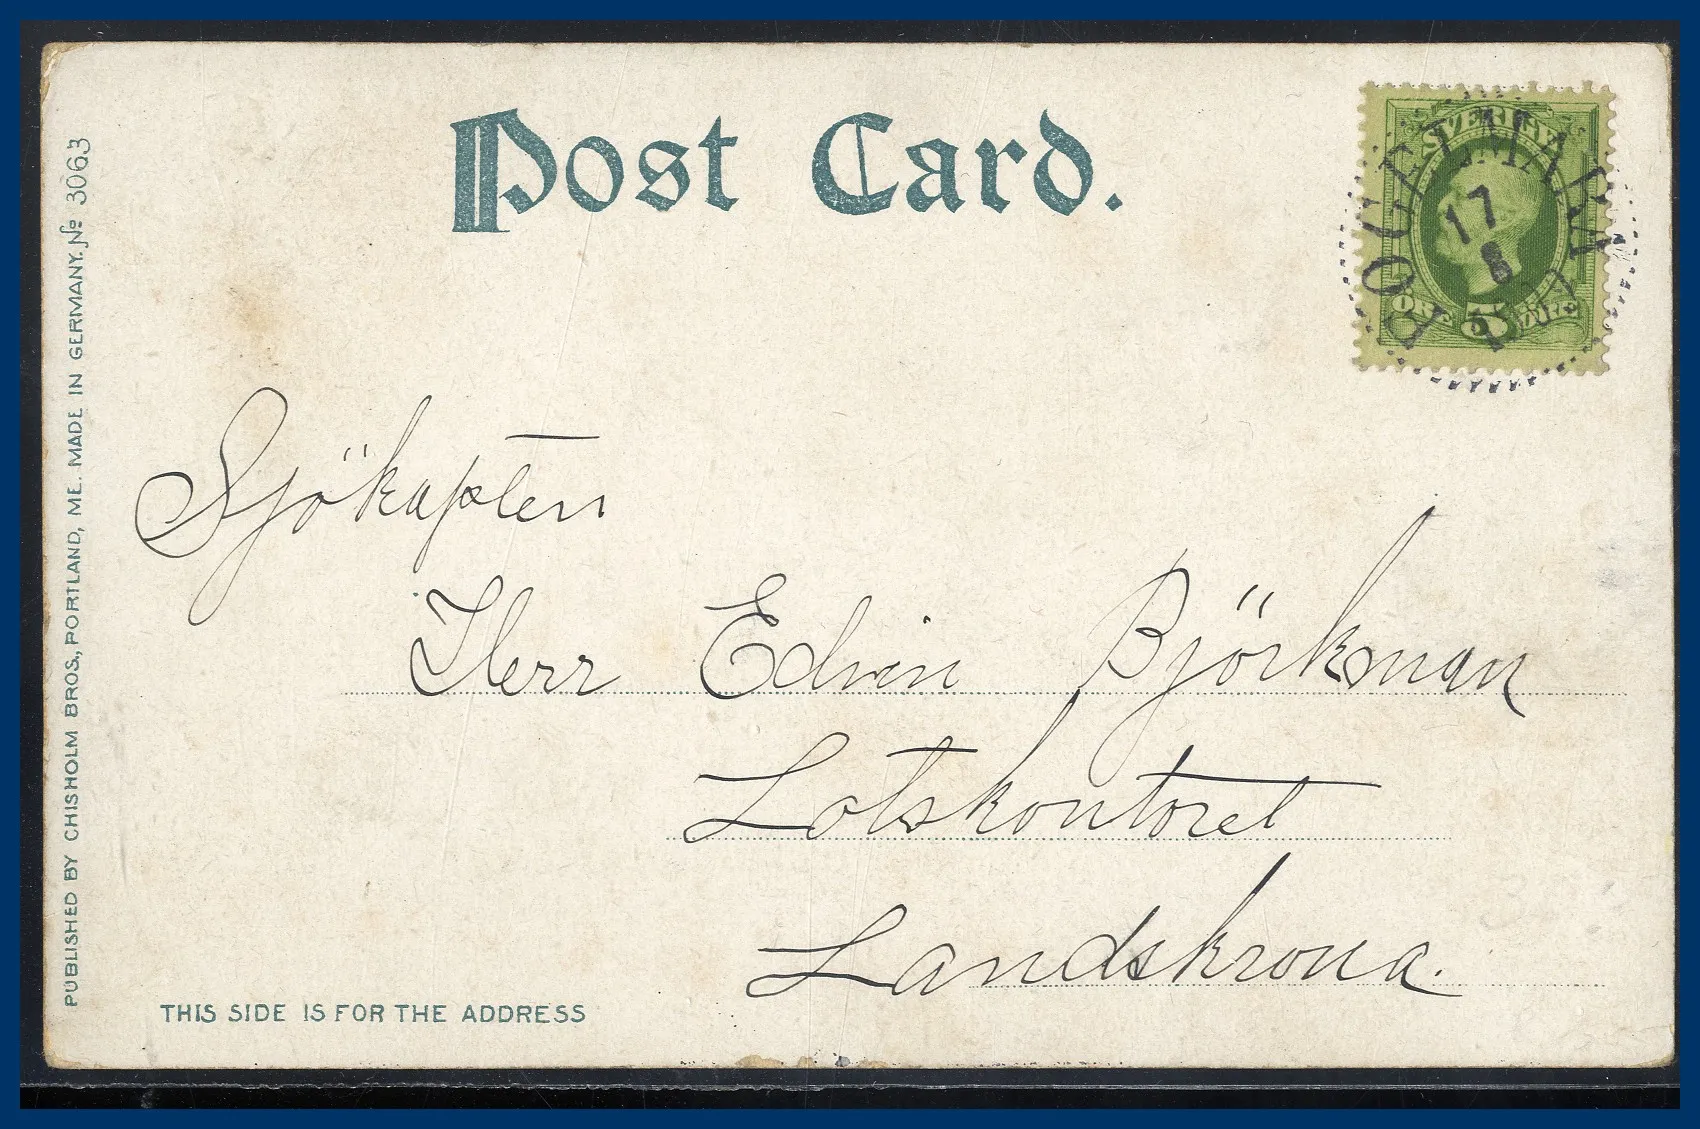 Post Card.
SVERIGE
17
8
ÖRE 5
PUBLISHED BY CHISHOLM BROS., PORTLAND, ME. MADE IN GERMANY. № 3063
Sjökapten
Herr Edvin Björkman
Lotskontoret
Landskrona.
THIS SIDE IS FOR THE ADDRESS